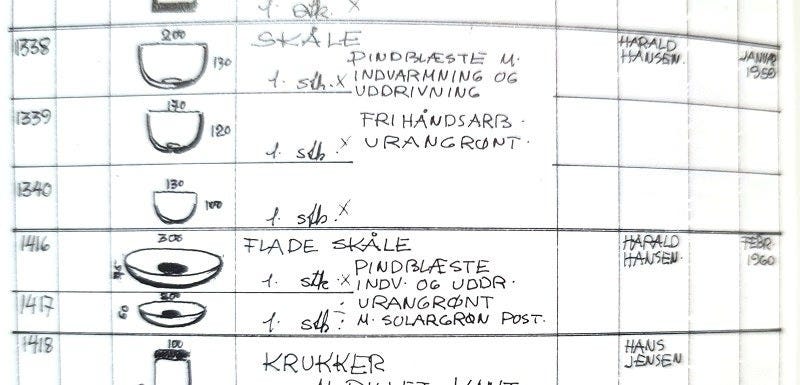 1. stk. x
1338 200 130 SKÅLE HARALD HANSEN. JANUAR 1959
PINDBLÆSTE M.
1. stk. x INDVARMNING OG
UDDRIVNING
1339 170 120 FRIHÅNDSARB.
1. stk. x URANGRØNT.
1340 130 100
1. stk. x
1416 300 FLADE SKÅLE HARALD HANSEN. FEBR. 1960
PINDBLÆSTE
1. stk. x INDV. OG UDDR.
1417 60 : URANGRØNT
1. stk : M. SOLARGRØN POST.
1418 100 KRUKKER HANS JENSEN